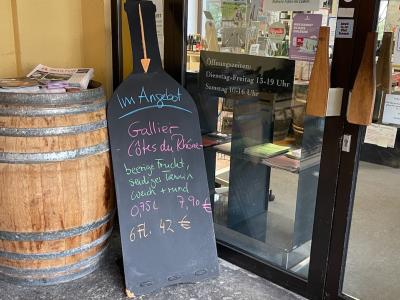 Im Angebot
Gallier
Côtes du Rhône
beerige Frucht,
seidiges Tannin
weich + rund
0,75L 7,90€
6 Fl. 42 €
Öffnungszeiten:
Dienstag-Freitag 13-19 Uhr
Samstag 10-16 Uhr